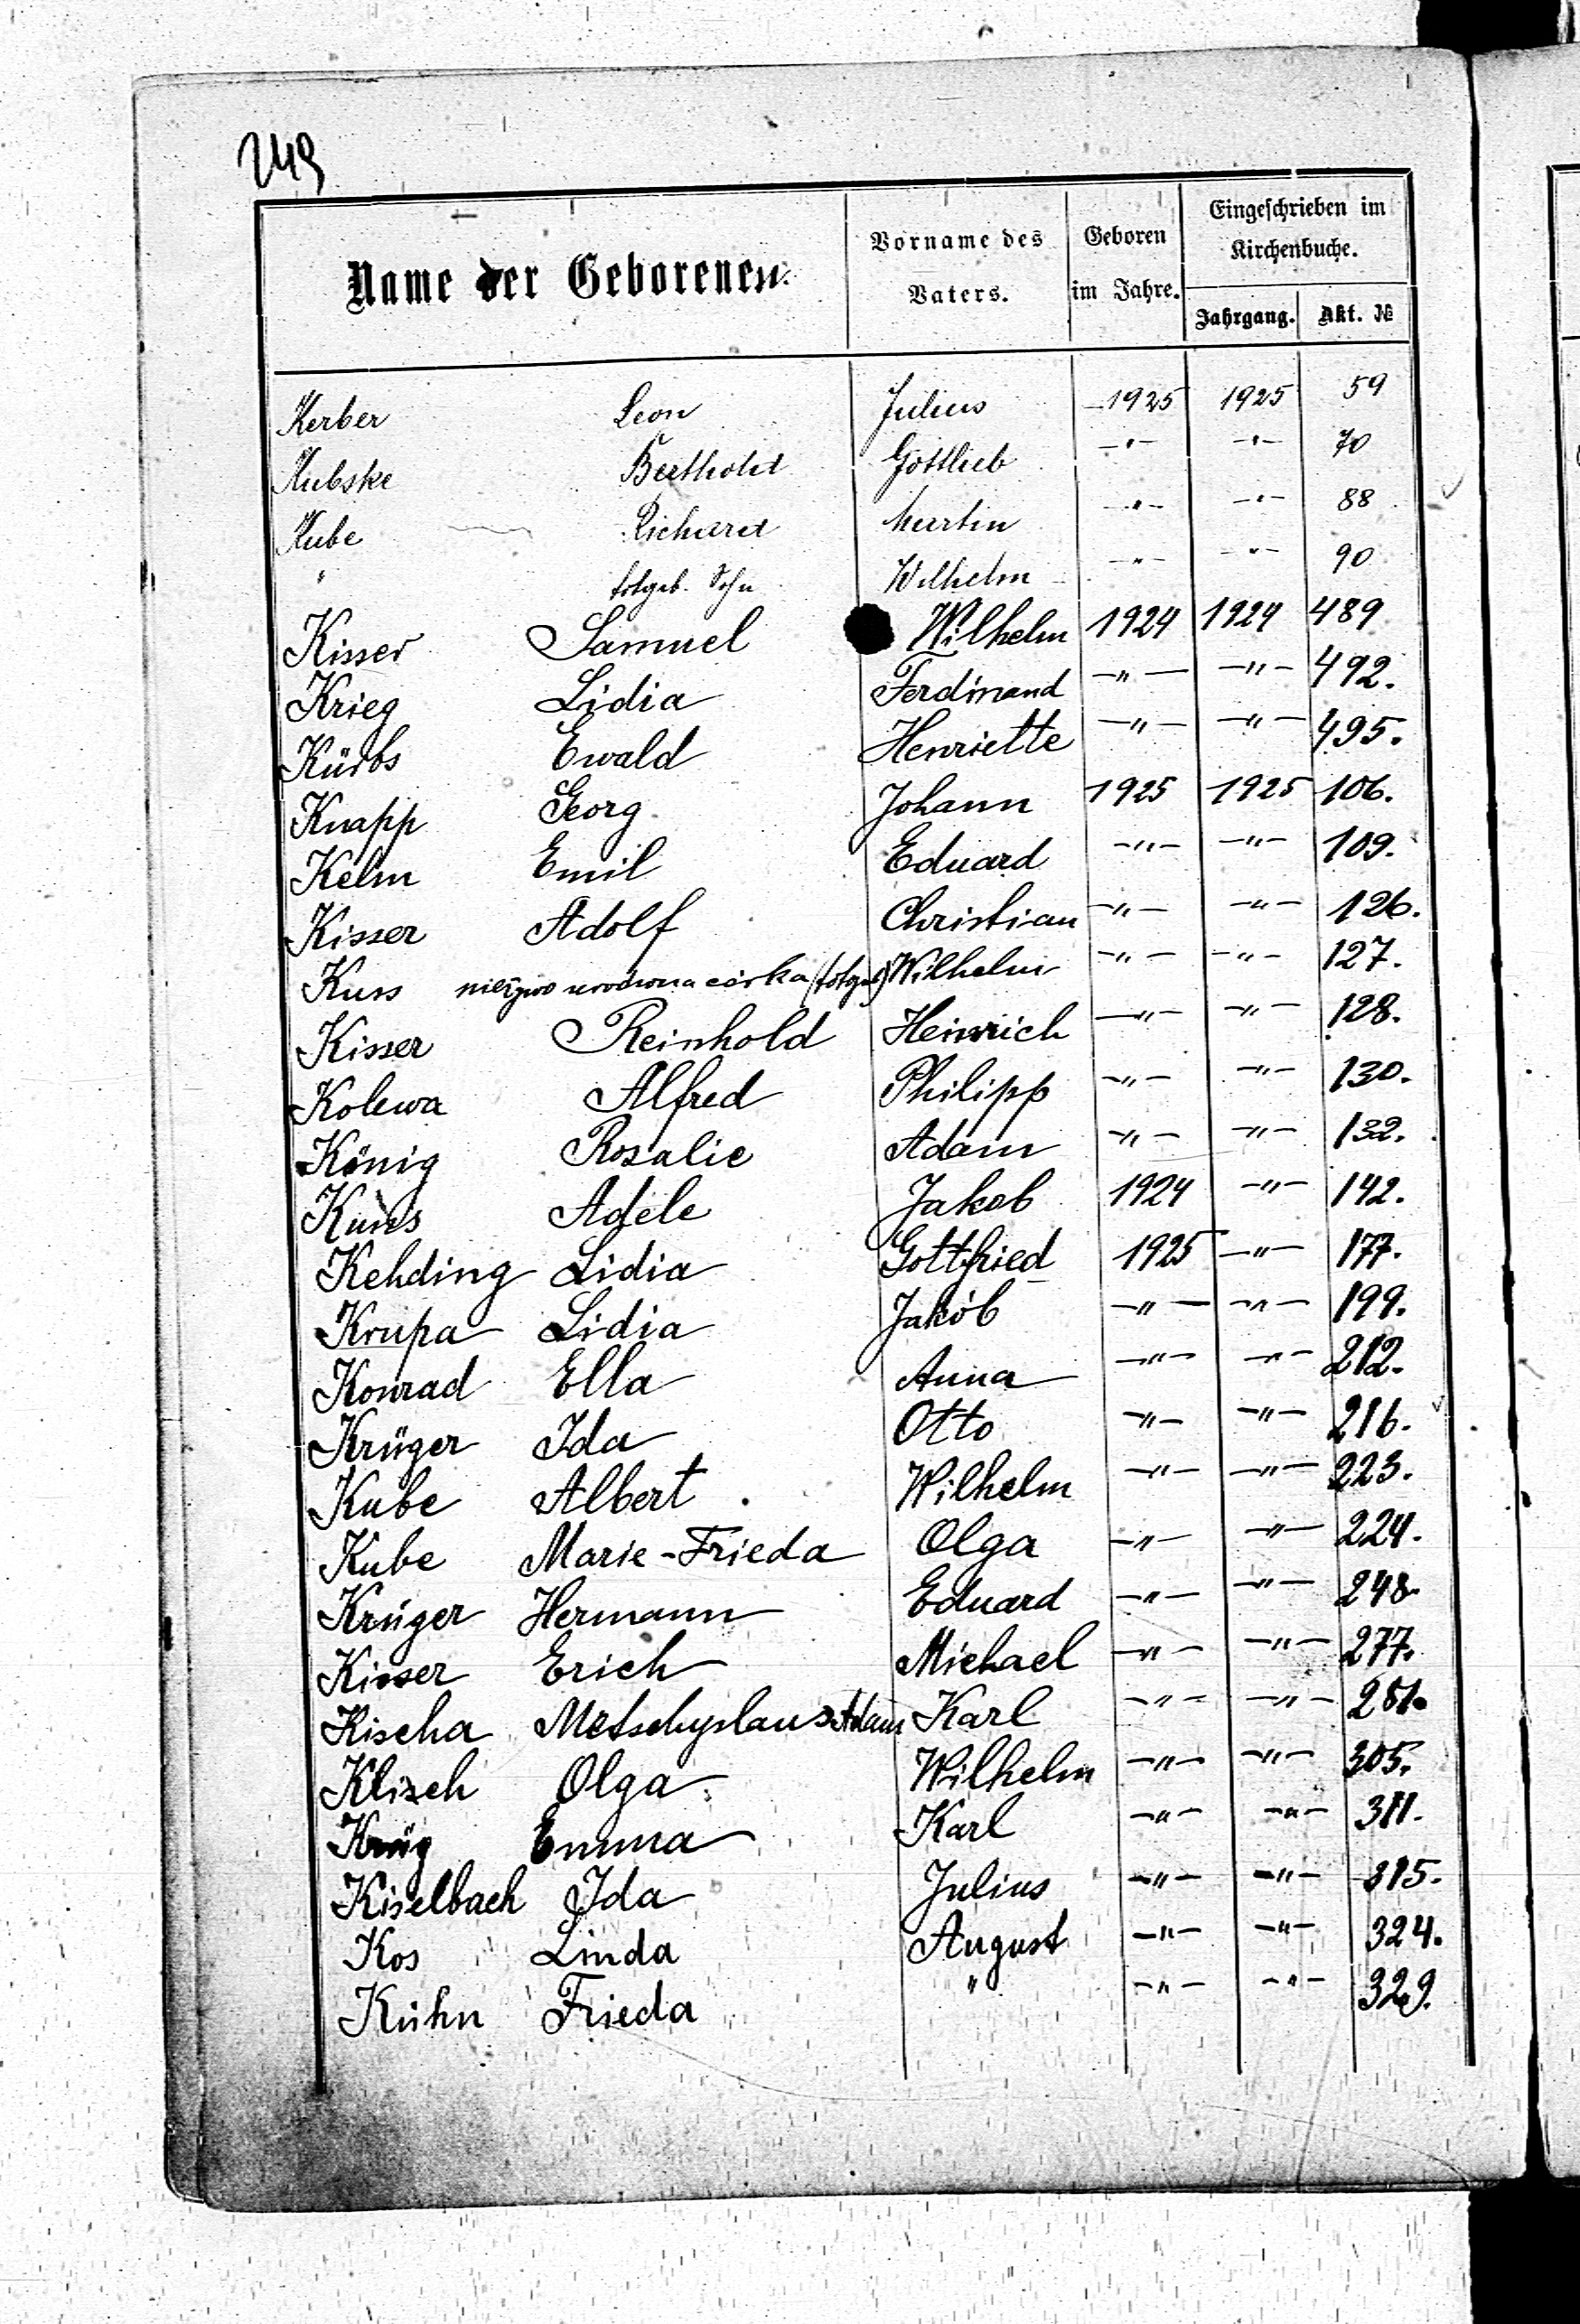 249
Name der Geborenen.
Vorname des Vaters.
Geboren im Jahre.
Eingeschrieben im Kirchenbuche.
Jahrgang. Akt. №
Kerber Leon Julius 1925 1925 59
Kubske Berthold Gottlieb -"- -"- 70
Kube Richard Martin -"- -"- 88
" totgeb. Sohn Wilhelm -"- -"- 90
Kisser Samuel Wilhelm 1924 1924 489
Krieg Lidia Ferdinand -"- -"- 492.
Kürbs Ewald Henriette -"- -"- 495.
Knapp Georg Johann 1925 1925 106.
Kelm Emil Eduard -"- -"- 109.
Kisser Adolf Christian -"- -"- 126.
Kuss nieżywo urodzona córka (totgeb) Wilhelm -"- -"- 127.
Kisser Reinhold Heinrich -"- -"- 128.
Kolewa Alfred Philipp -"- -"- 130.
König Rosalie Adam -"- -"- 132.
Adele Jakob 1924 -"- 142.
Kehding Lidia Gottfried 1925 -"- 177.
Krupa Lidia Jakób -"- -"- 199.
Konrad Ella Anna -"- -"- 212.
Krüger Ida Otto -"- -"- 216.
Kube Albert Wilhelm -"- -"- 223.
Kube Marie-Frieda Olga -"- -"- 224.
Krüger Hermann Eduard -"- -"- 248.
Kisser Erich Michael -"- -"- 277.
Kischa Metschyslaus Adam Karl -"- -"-
Klisch Olga Wilhelm -"- -"- 305.
Krüg Emma Karl -"- -"- 311.
Kiselbach Ida Julius -"- -"- 315.
Kos Linda August -"- -"- 324.
Kühn Frieda " -"- -"- 329.